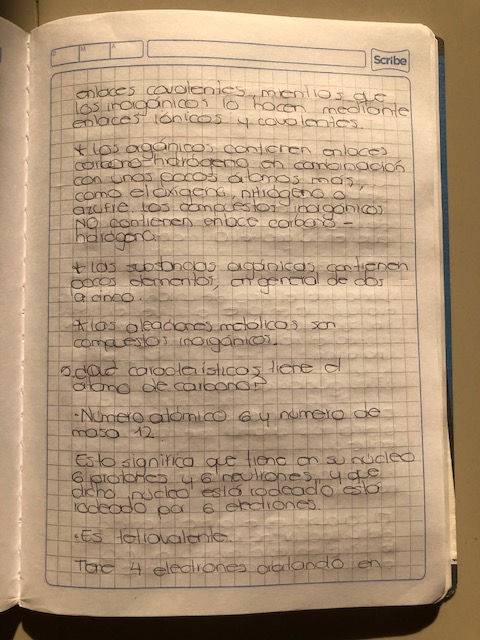 D M A
Scribe
enlaces covalentes, mientras que
los inorgánicos lo hacen mediante
enlaces iónicos y covalentes.
* Los orgánicos contienen enlaces
carbono-hidrógeno en combinación
con unos pocos átomos más,
como el oxígeno, nitrógeno o
azufre. Los compuestos inorgánicos
NO contienen enlace carbono-
hidrógeno.
* Las substancias orgánicas contienen
pocos elementos, en general de dos
a cinco.
* Las aleaciones metálicas son
compuestos inorgánicos.
características tiene el
átomo de carbono?
· Número atómico 6 y número de
masa 12.
Esto significa que tiene en su núcleo
6 protones y 6 neutrones, y que
dicho núcleo está rodeado está
rodeado por 6 electrones.
· Es tetravalente.
4 electrones orbitando en